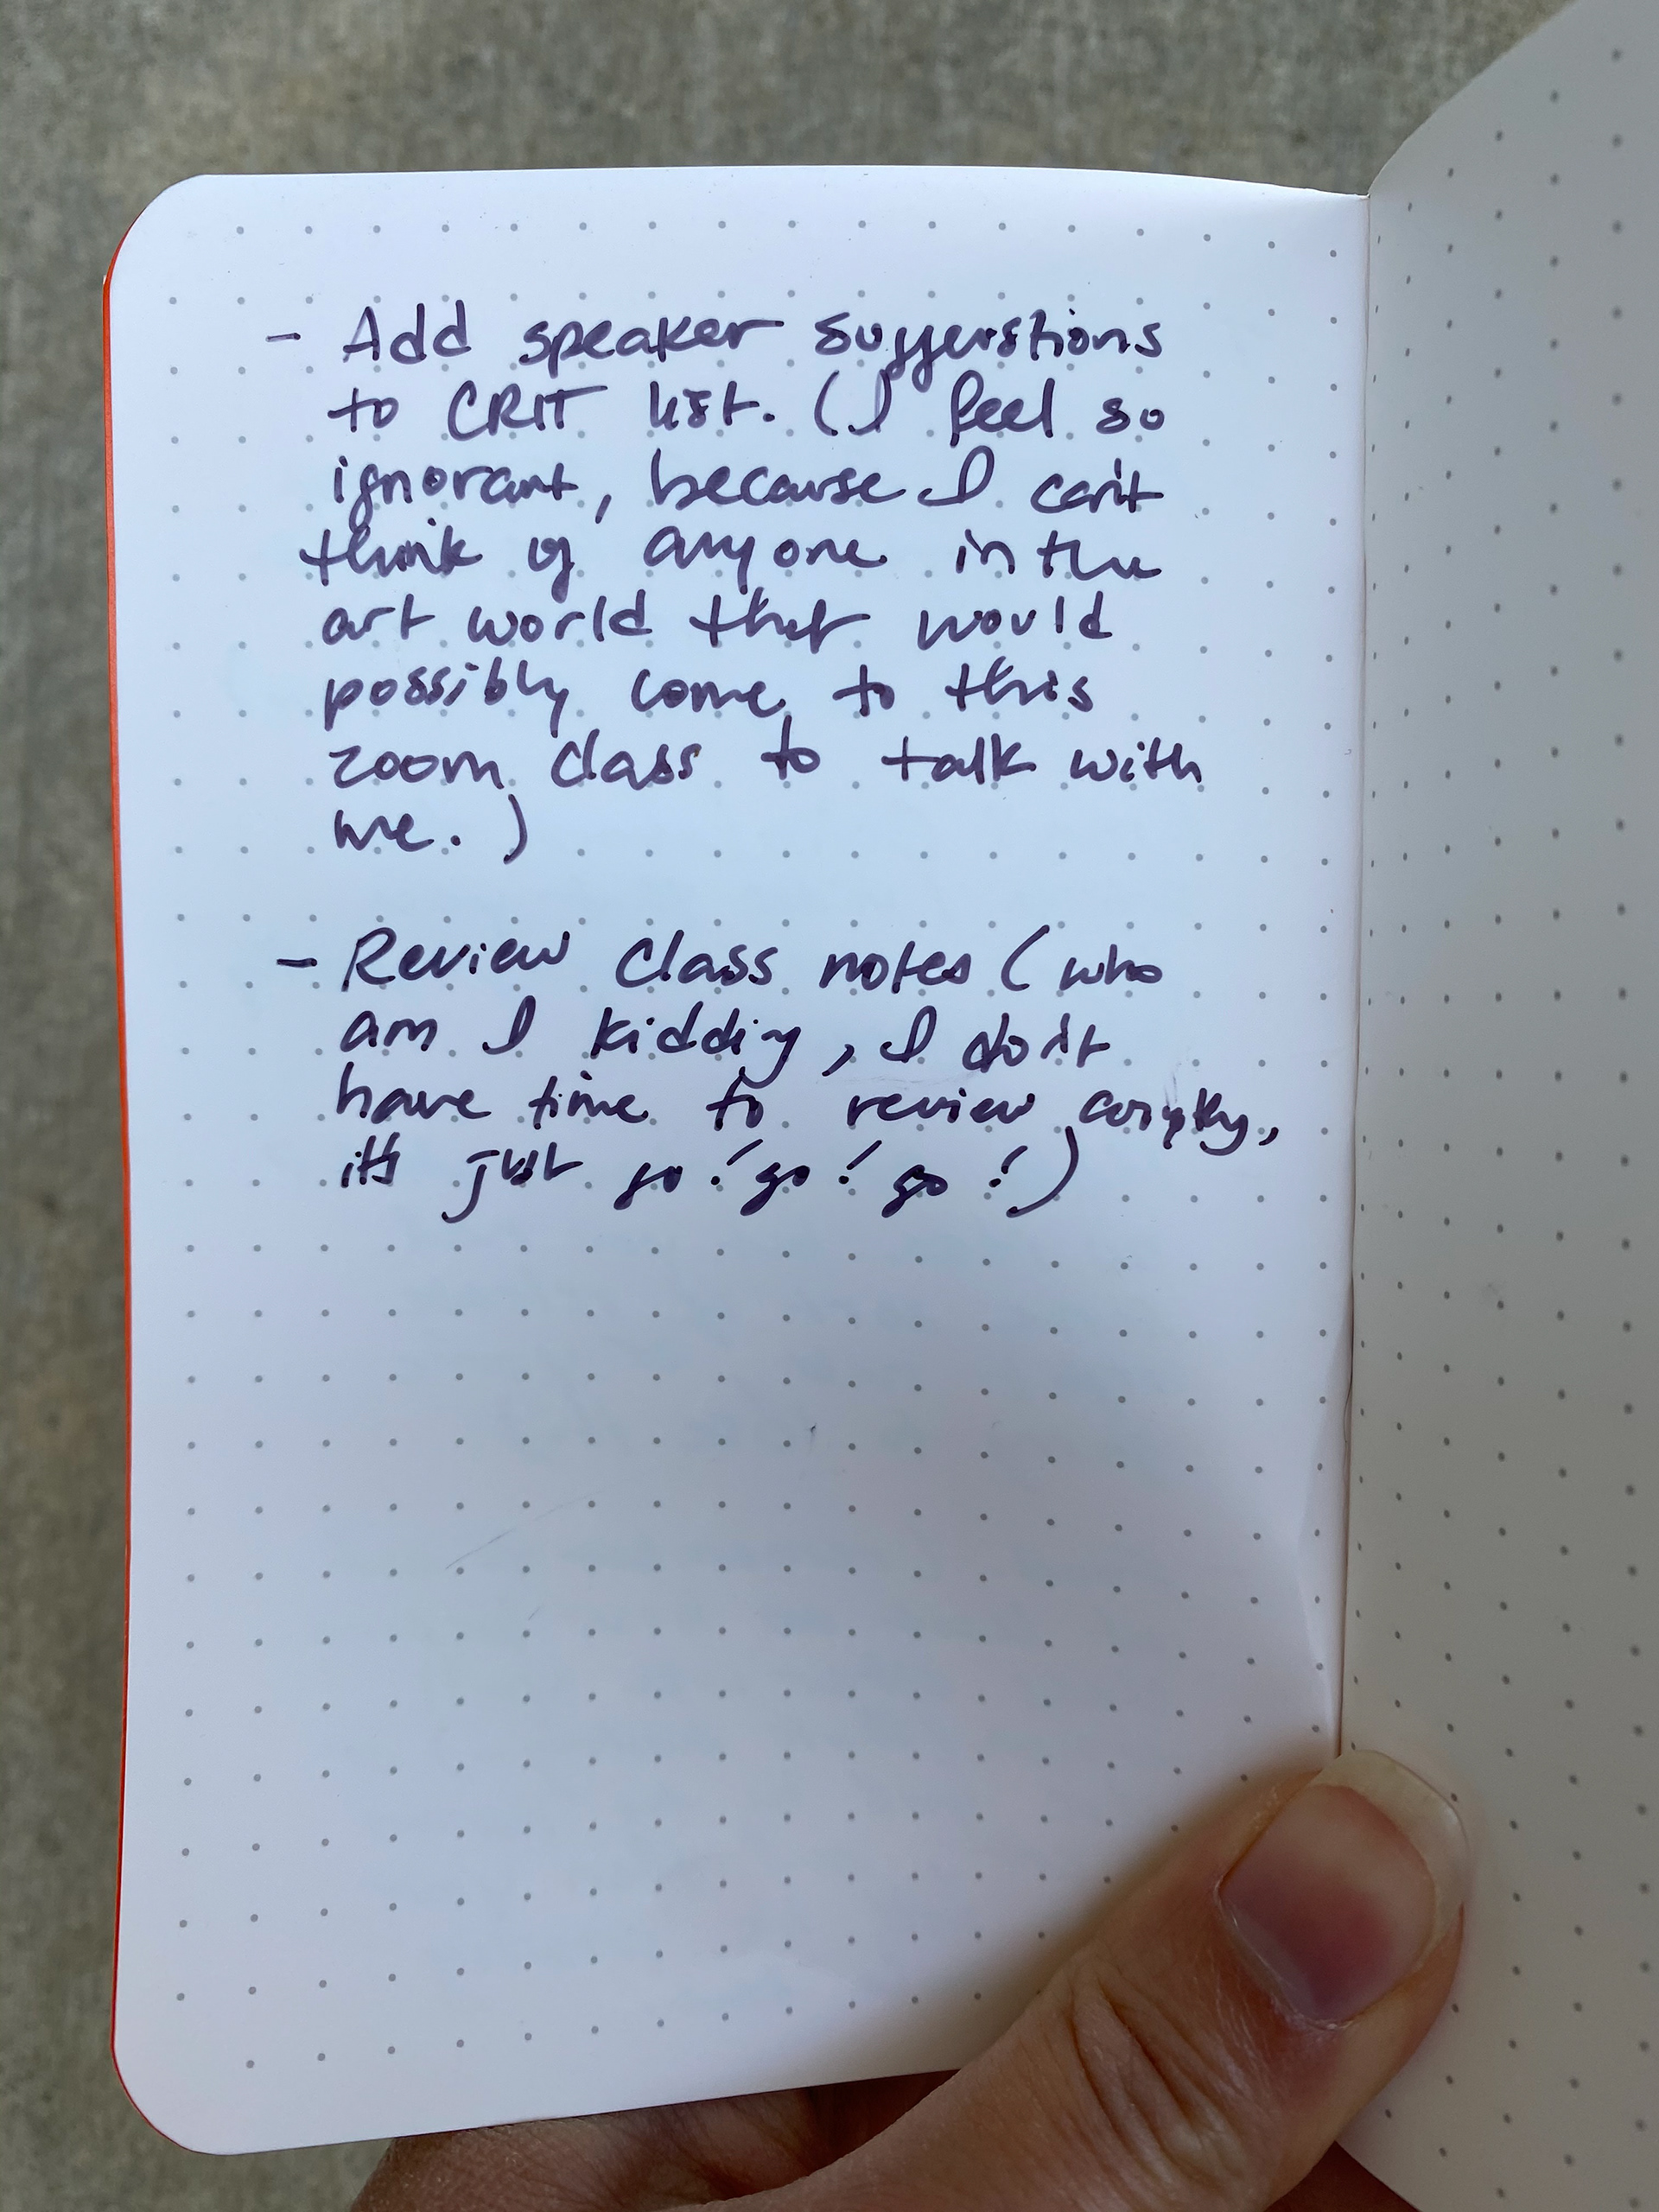 - Add speaker suggerstions
to CRIT list. (I feel so
ignorant, because I can't
think of anyone in the
art world that would
possibly come to this
zoom class to talk with
me.)
- Review class notes (who
am I kidding, I don't
have time to review anything,
it's just go! go! go!)